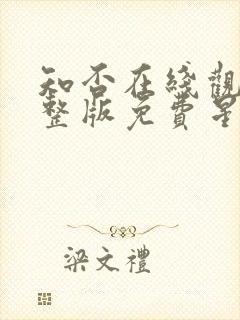 知否在綫觀
整版免費星
梁文禮